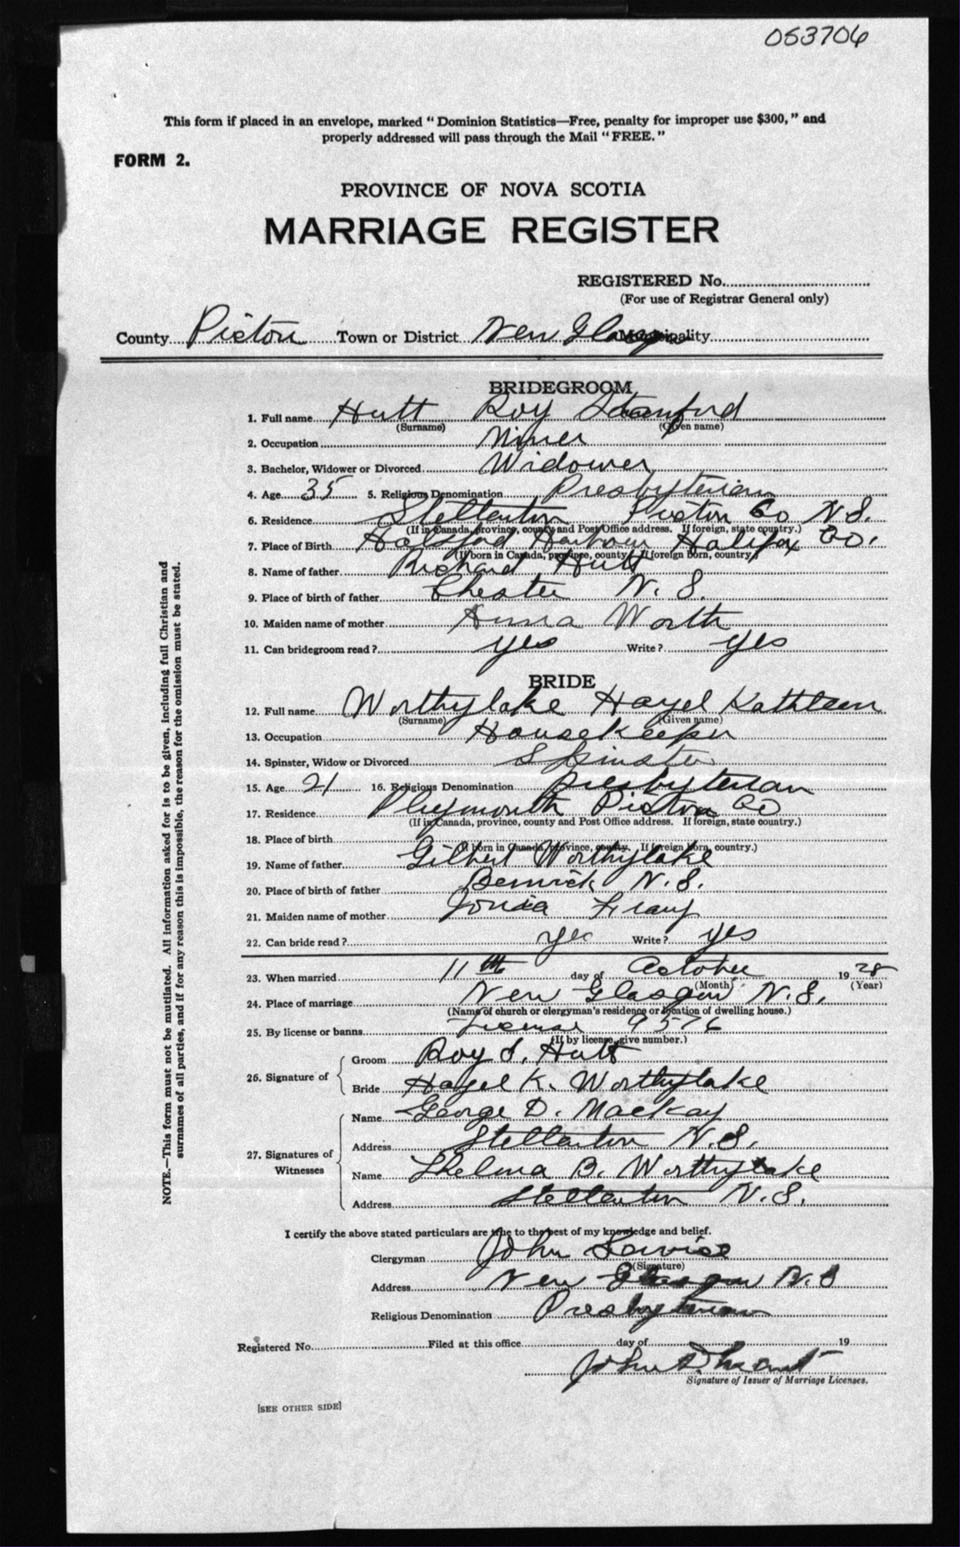 053706
This form if placed in an envelope, marked "Dominion Statistics—Free, penalty for improper use $300," and
properly addressed will pass through the Mail "FREE."
FORM 2.
PROVINCE OF NOVA SCOTIA
MARRIAGE REGISTER
REGISTERED No.
(For use of Registrar General only)
County Pictou Town or District New Glasgow Municipality
BRIDEGROOM
1. Full name Hutt Roy Stanford
(Surname) (Given name)
2. Occupation Miner
3. Bachelor, Widower or Divorced Widower
4. Age 35 5. Religious Denomination Presbyterian
6. Residence Stellarton Pictou Co N.S.
(If in Canada, province, county and Post Office address. If foreign, state country.)
7. Place of Birth Harbour Halifax Co.
(If born in Canada, province, county. If foreign born, country.)
8. Name of father Richard Hutt
9. Place of birth of father Chester N.S.
10. Maiden name of mother Anna Worth
11. Can bridegroom read? yes Write? yes
BRIDE
12. Full name Worthylake Hazel Kathleen
(Surname) (Given name)
13. Occupation Housekeeper
14. Spinster, Widow or Divorced Spinster
15. Age 21 16. Religious Denomination Presbyterian
17. Residence Plymouth Pictou Co
(If in Canada, province, county and Post Office address. If foreign, state country.)
18. Place of birth
(If born in Canada, province, county. If foreign born, country.)
19. Name of father Gilbert Worthylake
20. Place of birth of father Berwick N.S.
21. Maiden name of mother
22. Can bride read? yes Write? yes
23. When married 11th day of October 1928
(Month) (Year)
24. Place of marriage New Glasgow N.S.
(Name of church or clergyman's residence or location of dwelling house.)
25. By license or banns License 9576
(If by license, give number.)
26. Signature of Groom Roy S. Hutt
Bride Hazel K. Worthylake
27. Signatures of Witnesses Name George D. MacKay
Address Stellarton N.S.
Name Thelma B. Worthylake
Address Stellarton N.S.
I certify the above stated particulars are true to the best of my knowledge and belief.
Clergyman John
(Signature)
Address New Glasgow N.S
Religious Denomination Presbyterian
Registered No. Filed at this office day of 19
John D.
Signature of Issuer of Marriage Licenses.
[SEE OTHER SIDE]
NOTE.—This form must not be mutilated. All information asked for is to be given, including full Christian and
surnames of all parties, and if for any reason this is impossible, the reason for the omission must be stated.